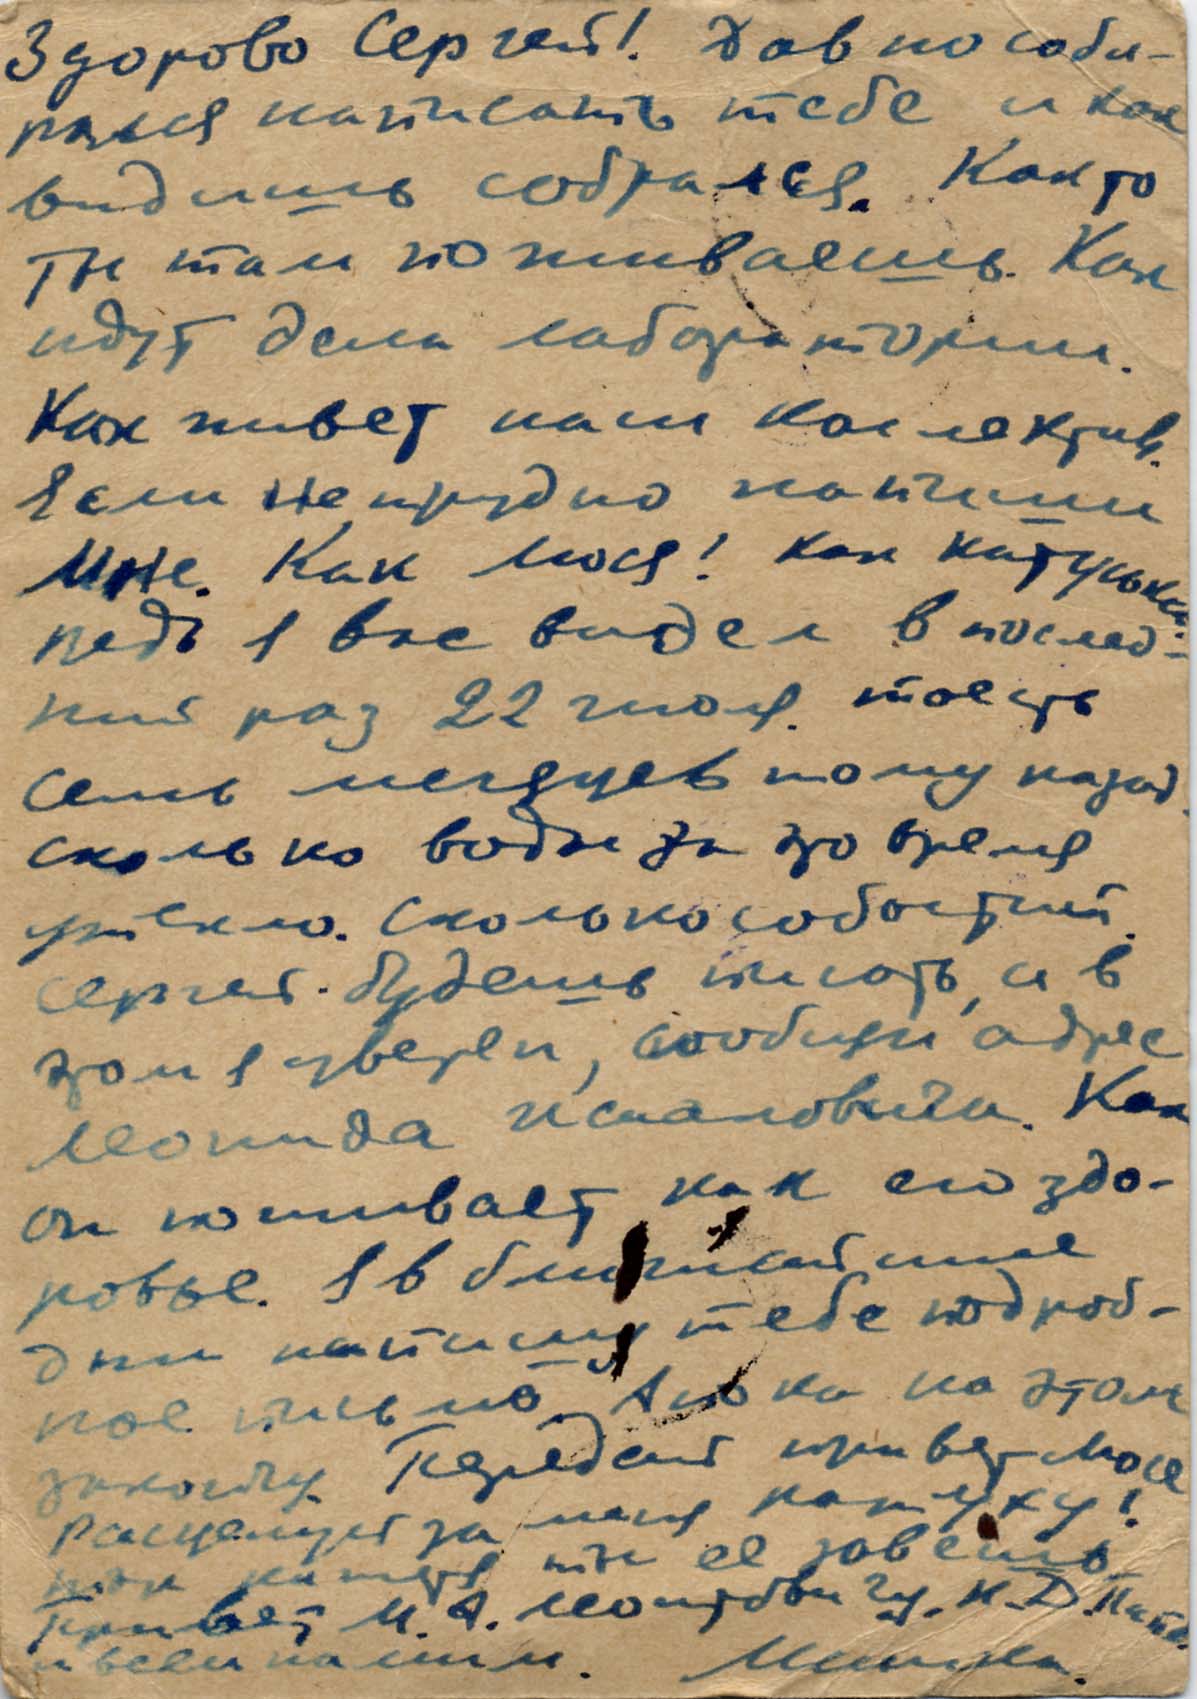 Здорово Сергей! Давно соби-
рался написать тебе и как
видишь собрался. Как то
ты там поживаешь. Как
идут дела лаборатории.
Как живет наш коллектив.
Если не трудно напиши
мне. Как Люся! Как Катуська
ведь я вас видел в послед-
ний раз 22 июля. тоесть
семь месяцев тому назад.
сколько воды за это время
утекло. Сколько событий.
Сергей. будешь писать, а в
этом я уверен, сообщи адрес
Леонида Исааковича. Как
он поживает, как его здо-
ровье. Я в ближайшие
дни напишу тебе подроб-
ное письмо. А пока на этом
закончу. Передай привет Люсе
Расцелуй за меня Катуху!
так кажется ты ее зовешь
Привет М. А. Леонтовичу. Н. Д.
и всем нашим. Мишка.